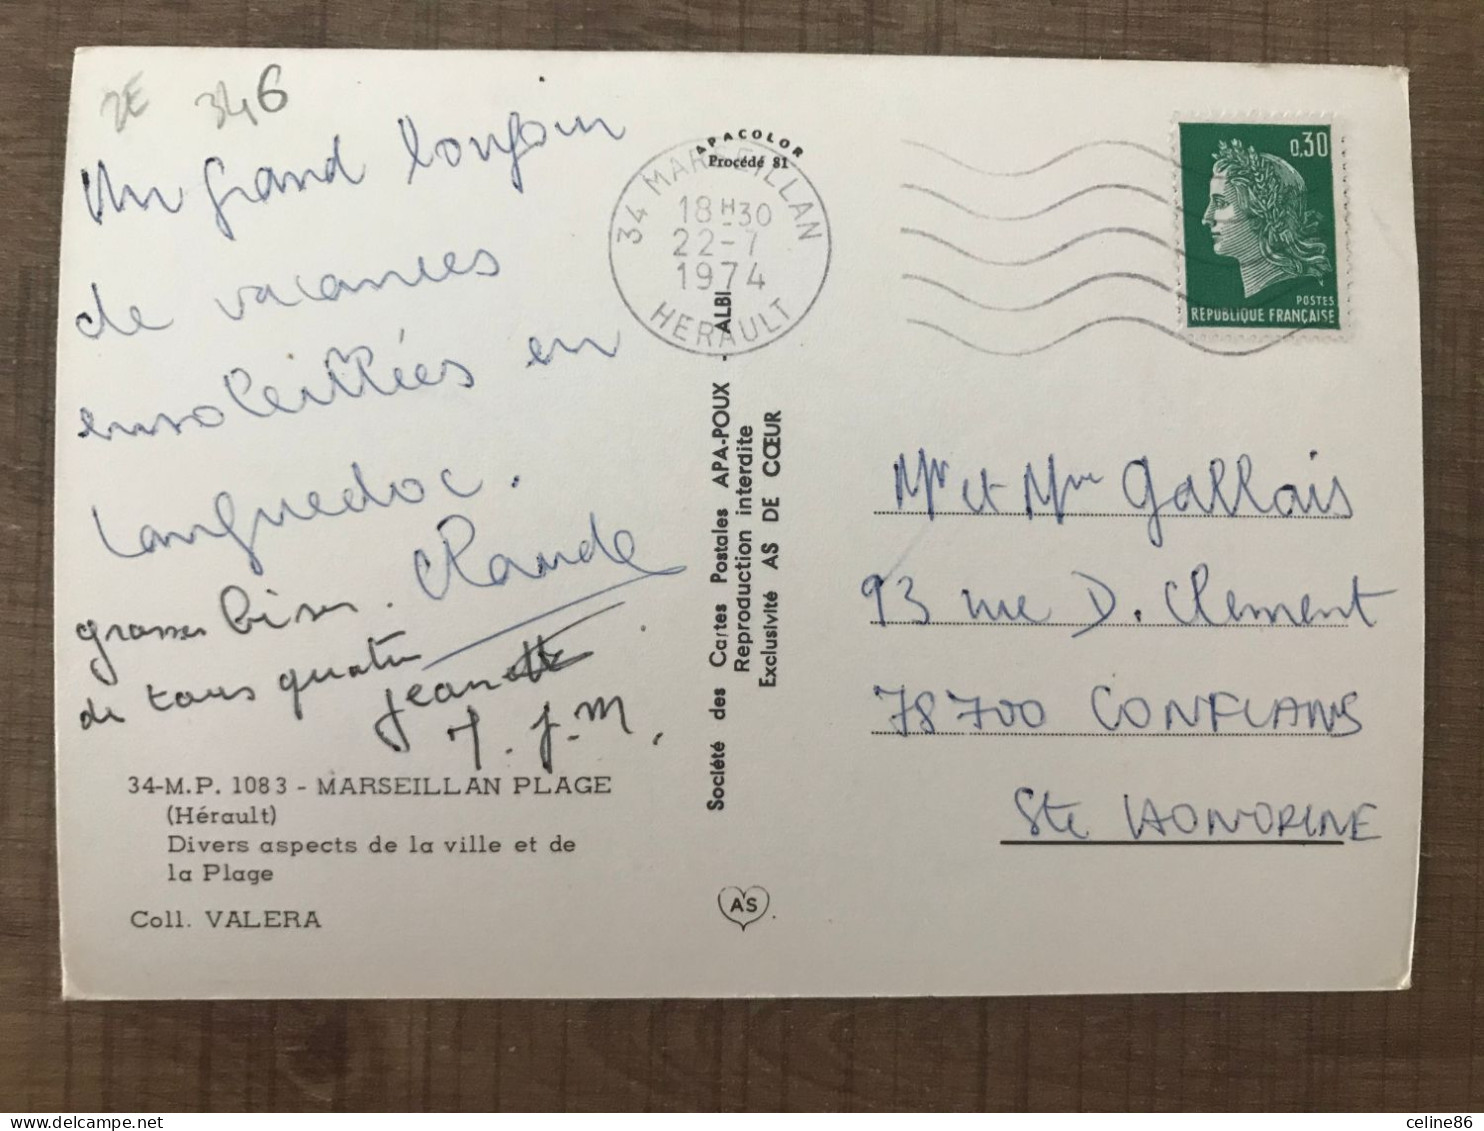 2E 346
Un grand bonjour
de vacances
ensoleillées en
Languedoc.
Claude
grosses bises.
de tous quatre
Jeanette
J. J-M.
34-M.P. 1083 - MARSEILLAN PLAGE
(Hérault)
Divers aspects de la ville et de
la Plage
Coll. VALERA
APACOLOR
Procédé 81
34 MARSEILLAN
18H30
22-7
1974
HERAULT
Société des Cartes Postales APA-POUX - ALBI
Reproduction interdite
Exclusivité AS DE CŒUR
AS
0,30
POSTES
REPUBLIQUE FRANÇAISE
Mr et Mme Gallois
93 rue D. Clement
78700 CONFLANS
Ste HONORINE
delcampe.net
celine86